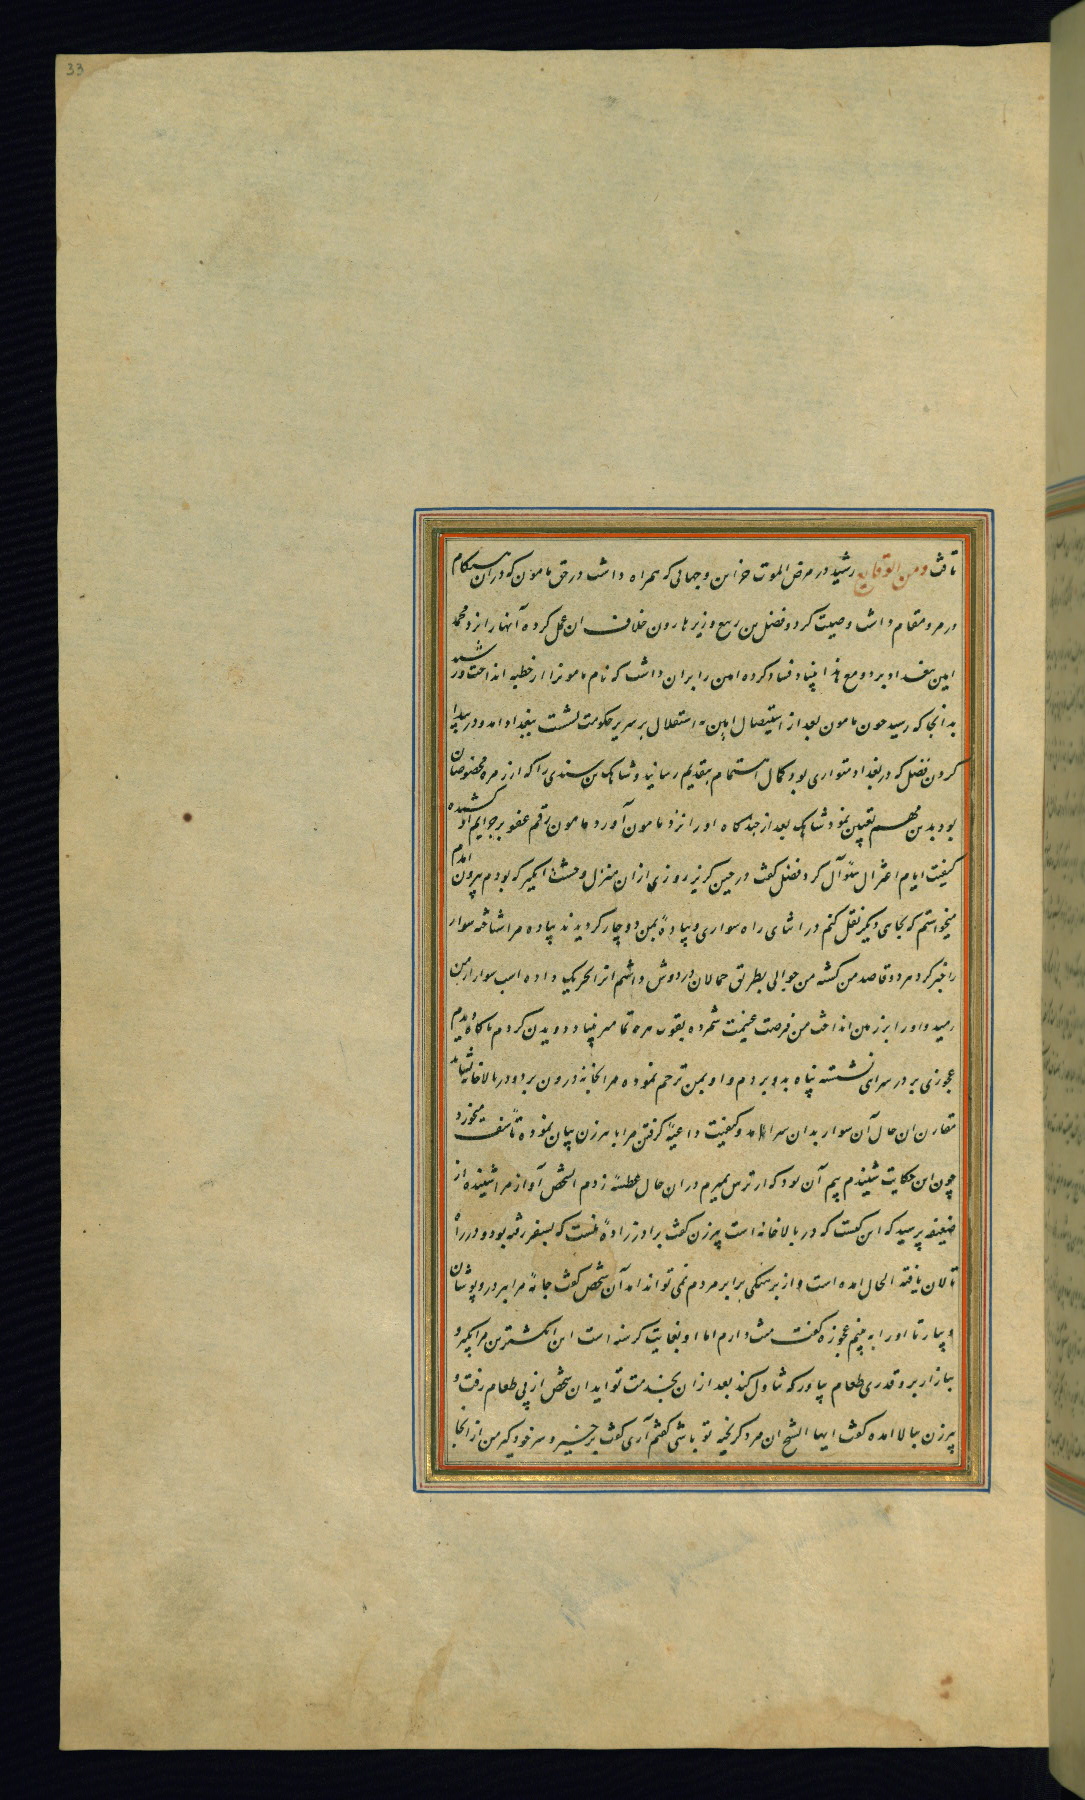 33
تافت ومن الوقایع رشید در مرض الموت خزاین و جهاتی که همراه داشت در حق مامون که دران هنکام
در مرو مقام داشت وصیت کرد و فضل بن ربیع وزیر هارون خلاف ان عمل کرده آنها را نزد محمد
امین ببغداد برد و مع هذا بنیاد فساد کرده امین را بران داشت که نام مامونرا از خطبه انداخت و رسید
بدانجا که رسید چون مامون بعد از استیصال امین به استقلال بر سریر حکومت نشست ببغداد امد و در پیدا
کردن فضل که در بغداد متواری بود کمال اهتمام بتقدیم رسانید و شاهک بن سندی را که از زمره مخصوصان
بود بدین مهم تعیین نمود شاهک بعد از چند کاه او را نزد مامون آورد مامون رقم عفو بر جرایم او کشیده
کیفیت ایام اعتزال سؤال کرد فضل کفت در حین کریز روزی ازان منزل وحشت انکیز که بودم بیرون امدم
میخواستم که بجای دیکر نقل کنم در اثنای راه سواری و پیادهٔ بمن دوچار کردیدند پیاده مرا شناخته سوار
را خبر کرد هر دو قاصد من کشته من جوالی بطریق حمالان در دوش داشتم انرا تحریک داده اسب سوار از من
رمید و او را بر زمین انداخت من فرصت غنیمت شمرده بقوت هر چه تمامتر بنیاد دویدن کردم ناکاه دیدم
عجوزی بر در سرای نشسته پناه بدو بردم و او بمن ترحم نموده مرا بخانه درون برد و در بالاخانه نشاند
مقارن ان حال آن سوار بدان سرا امد و کیفیت داعیهٔ کرفتن مرا با پیرزن بیان نموده تأسف میخورد
چون این حکایت شنیدم بیم آن بود که از ترس بمیرم دران حال عطسهٔ زدم الشخص آواز مرا شنیده از
ضعیفه پرسید که این کیست که در بالاخانه است پیرزن کفت برادرزادهٔ منست که بسفر رفته بود و در راه
تالان یافته الحال امده است و از برهنکی برابر مردم نمی تواند امد آن شخص کفت جامهٔ مرا ببر در و پوشان
و بیار تا او را به بینم عجوزه کفت منت دارم اما او بغایت کرسنه است این انکشترین مرا بکیر و
ببازار برو قدری طعام بیاور که تناول کند بعد ازان بخدمت تو اید ان شخص از پی طعام رفت و
پیرزن ببالا امده کفت ایها الشیخ ان مرد کریخته تو باشی کفتم آری کفت برخیز و سر خود کیر من از انجا